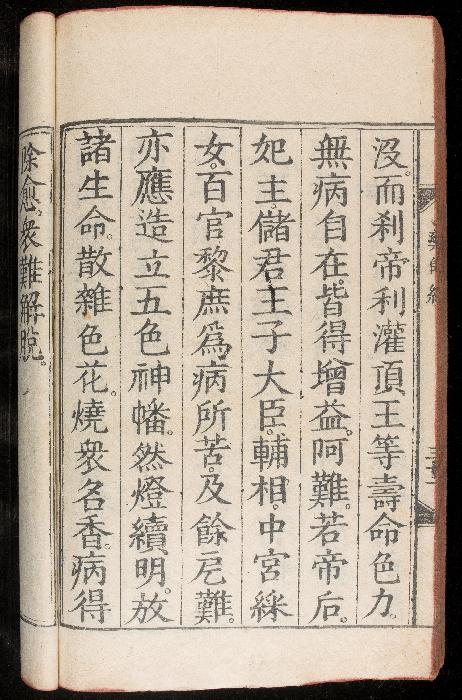 藥師經
沒。而刹帝利灌頂王等壽命色力。
無病自在。皆得增益。阿難。若帝后。
妃主。儲君王子大臣。輔相。中宮綵
女。百官黎庶為病所苦。及餘戹難。
亦應造立五色神幡。然燈續明。放
諸生命。散雜色花。燒衆名香。病得
除愈。衆難解脫。